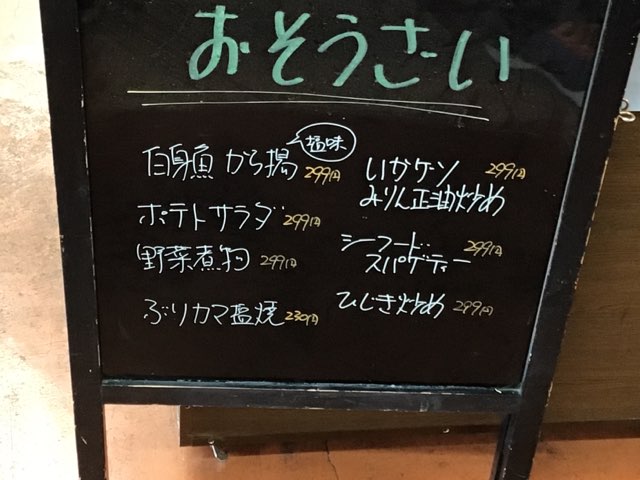 おそうさい
塩味
白身魚 から揚 299円
ポテトサラダ 299円
野菜煮物 299円
ぶりカマ塩焼 230円
いかゲソ 299円
みりん正油炒め
シーフード
スパゲティー 299円
ひじき炒め 299円